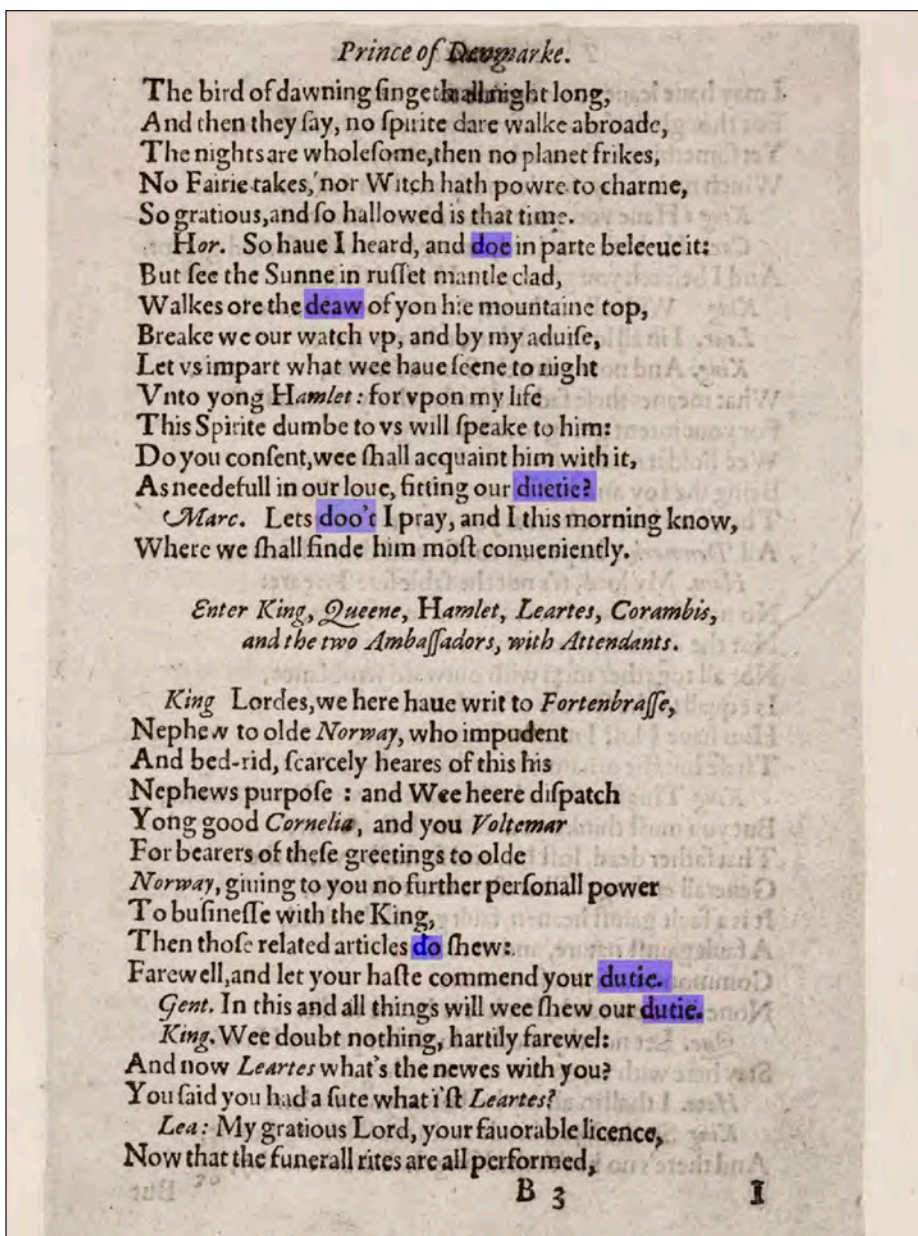 Prince of Denmarke.
The bird of dawning ſingeth all night long,
And then they ſay, no ſpirite dare walke abroade,
The nights are wholeſome, then no planet frikes,
No Fairie takes, nor Witch hath powre to charme,
So gratious, and ſo hallowed is that time.
Hor. So haue I heard, and doe in parte beleeue it:
But ſee the Sunne in ruſſet mantle clad,
Walkes ore the deaw of yon hie mountaine top,
Breake we our watch vp, and by my aduiſe,
Let vs impart what wee haue ſeene to night
Vnto yong Hamlet: for vpon my life
This Spirite dumbe to vs will ſpeake to him:
Do you conſent, wee ſhall acquaint him with it,
As needefull in our loue, fitting our duetie?
Marc. Lets doo't I pray, and I this morning know,
Where we ſhall finde him moſt conueniently.
Enter King, Queene, Hamlet, Leartes, Corambis,
and the two Ambaſſadors, with Attendants.
King Lordes, we here haue writ to Fortenbraſſe,
Nephew to olde Norway, who impudent
And bed-rid, ſcarcely heares of this his
Nephews purpoſe : and Wee heere diſpatch
Yong good Cornelia, and you Voltemar
For bearers of theſe greetings to olde
Norway, giuing to you no further perſonall power
To buſineſſe with the King,
Then thoſe related articles do ſhew:
Farewell, and let your haſte commend your dutie.
Gent. In this and all things will wee ſhew our dutie.
King. Wee doubt nothing, hartily farewel:
And now Leartes what's the newes with you?
You ſaid you had a ſute what i'ſt Leartes?
Lea: My gratious Lord, your fauorable licence,
Now that the funerall rites are all performed,
B 3 I